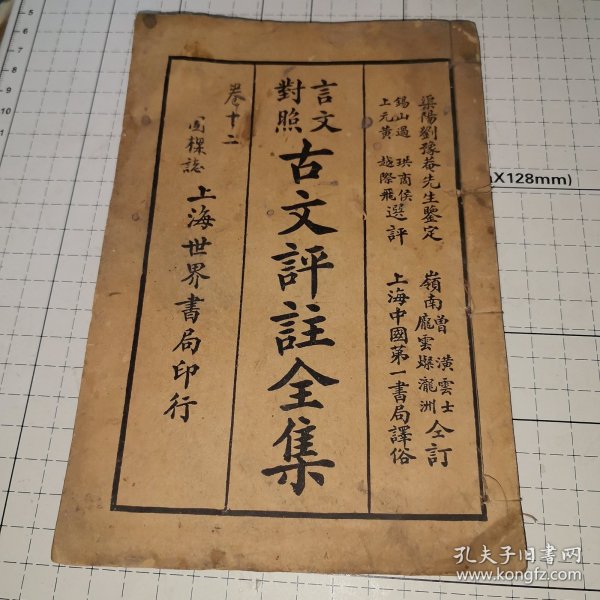 渠陽劉豫菴先生鑒定
錫山過 珙商侯
上元黃 越際飛
選評
嶺南曾 潢雲士
龐雲㙮瀧洲
仝訂
上海中國第一書局譯俗
言文
對照
古文評註全集
卷十二
上海世界書局印行
X128mm)
5
6
7
8
9
10
孔夫子旧书网
www.kongfz.com